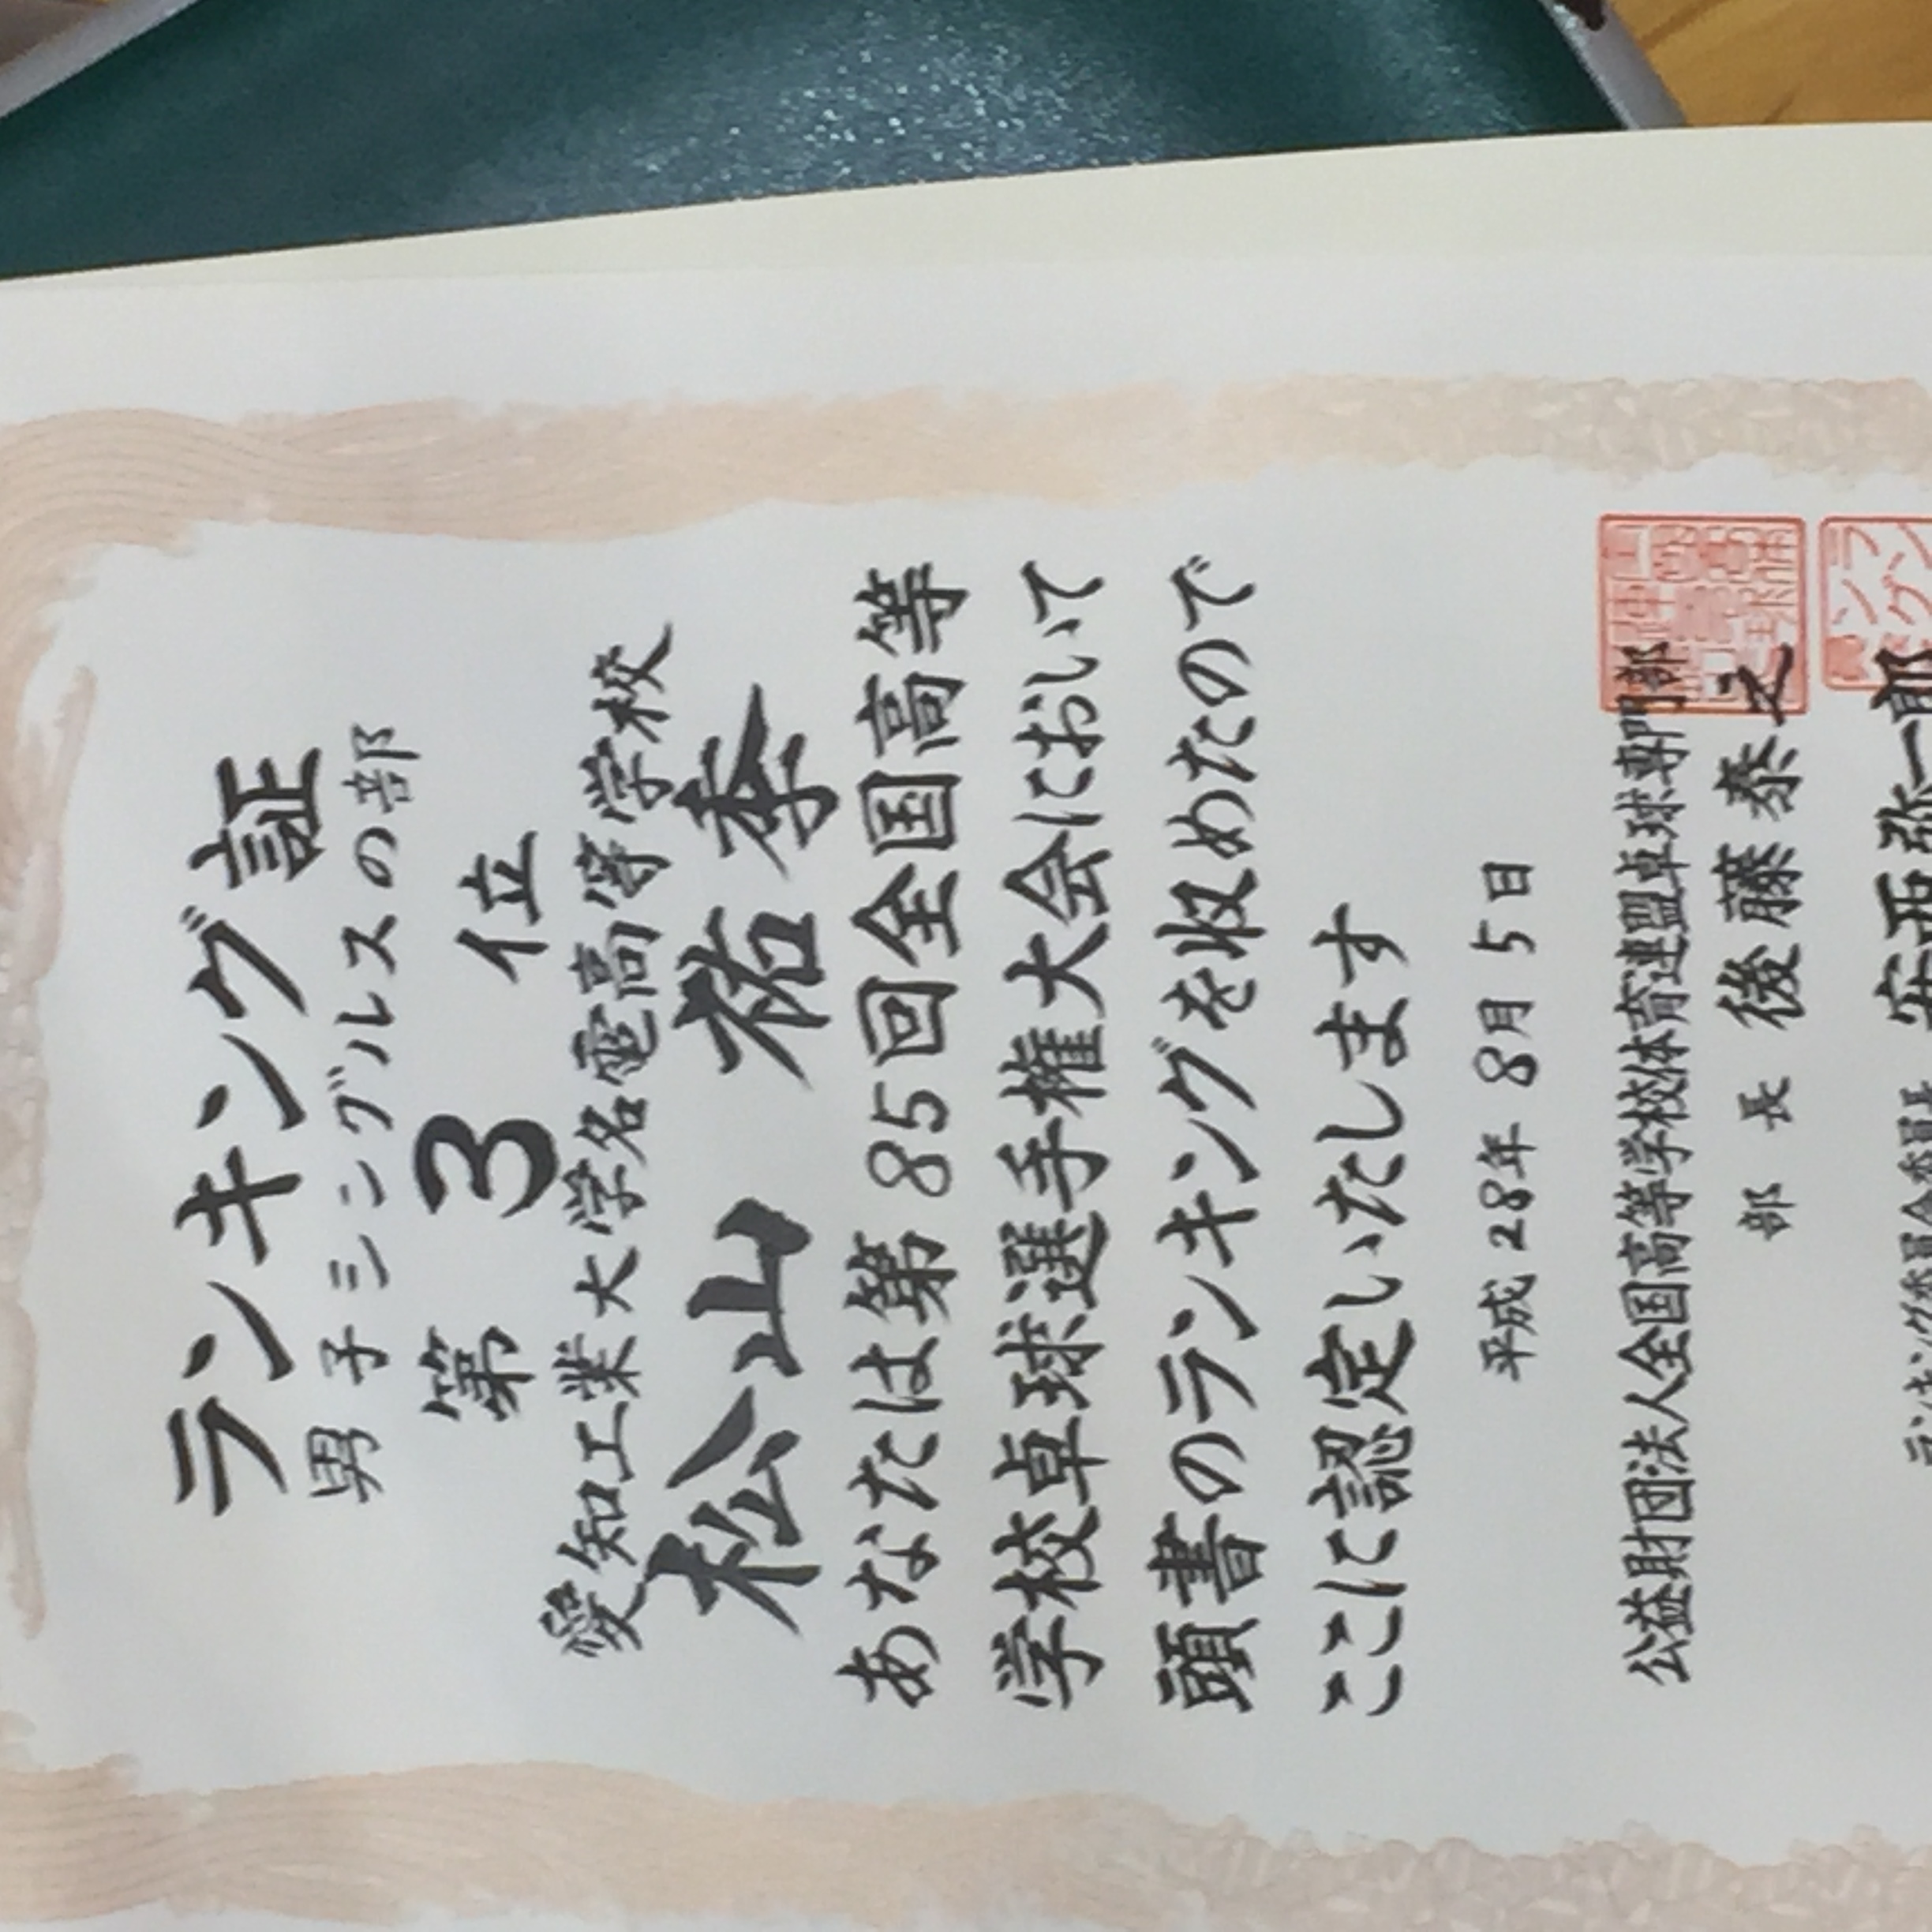 ランキング証
男子シングルスの部
第3位
愛知工業大学名電高等学校
松山祐季
あなたは第85回全国高等
学校卓球選手権大会において
頭書のランキングを収めたので
ここに認定いたします
平成28年8月5日
公益財団法人全国高等学校体育連盟卓球専門部
部長 後藤泰之
ランキング委員会委員長 安西弥一郎